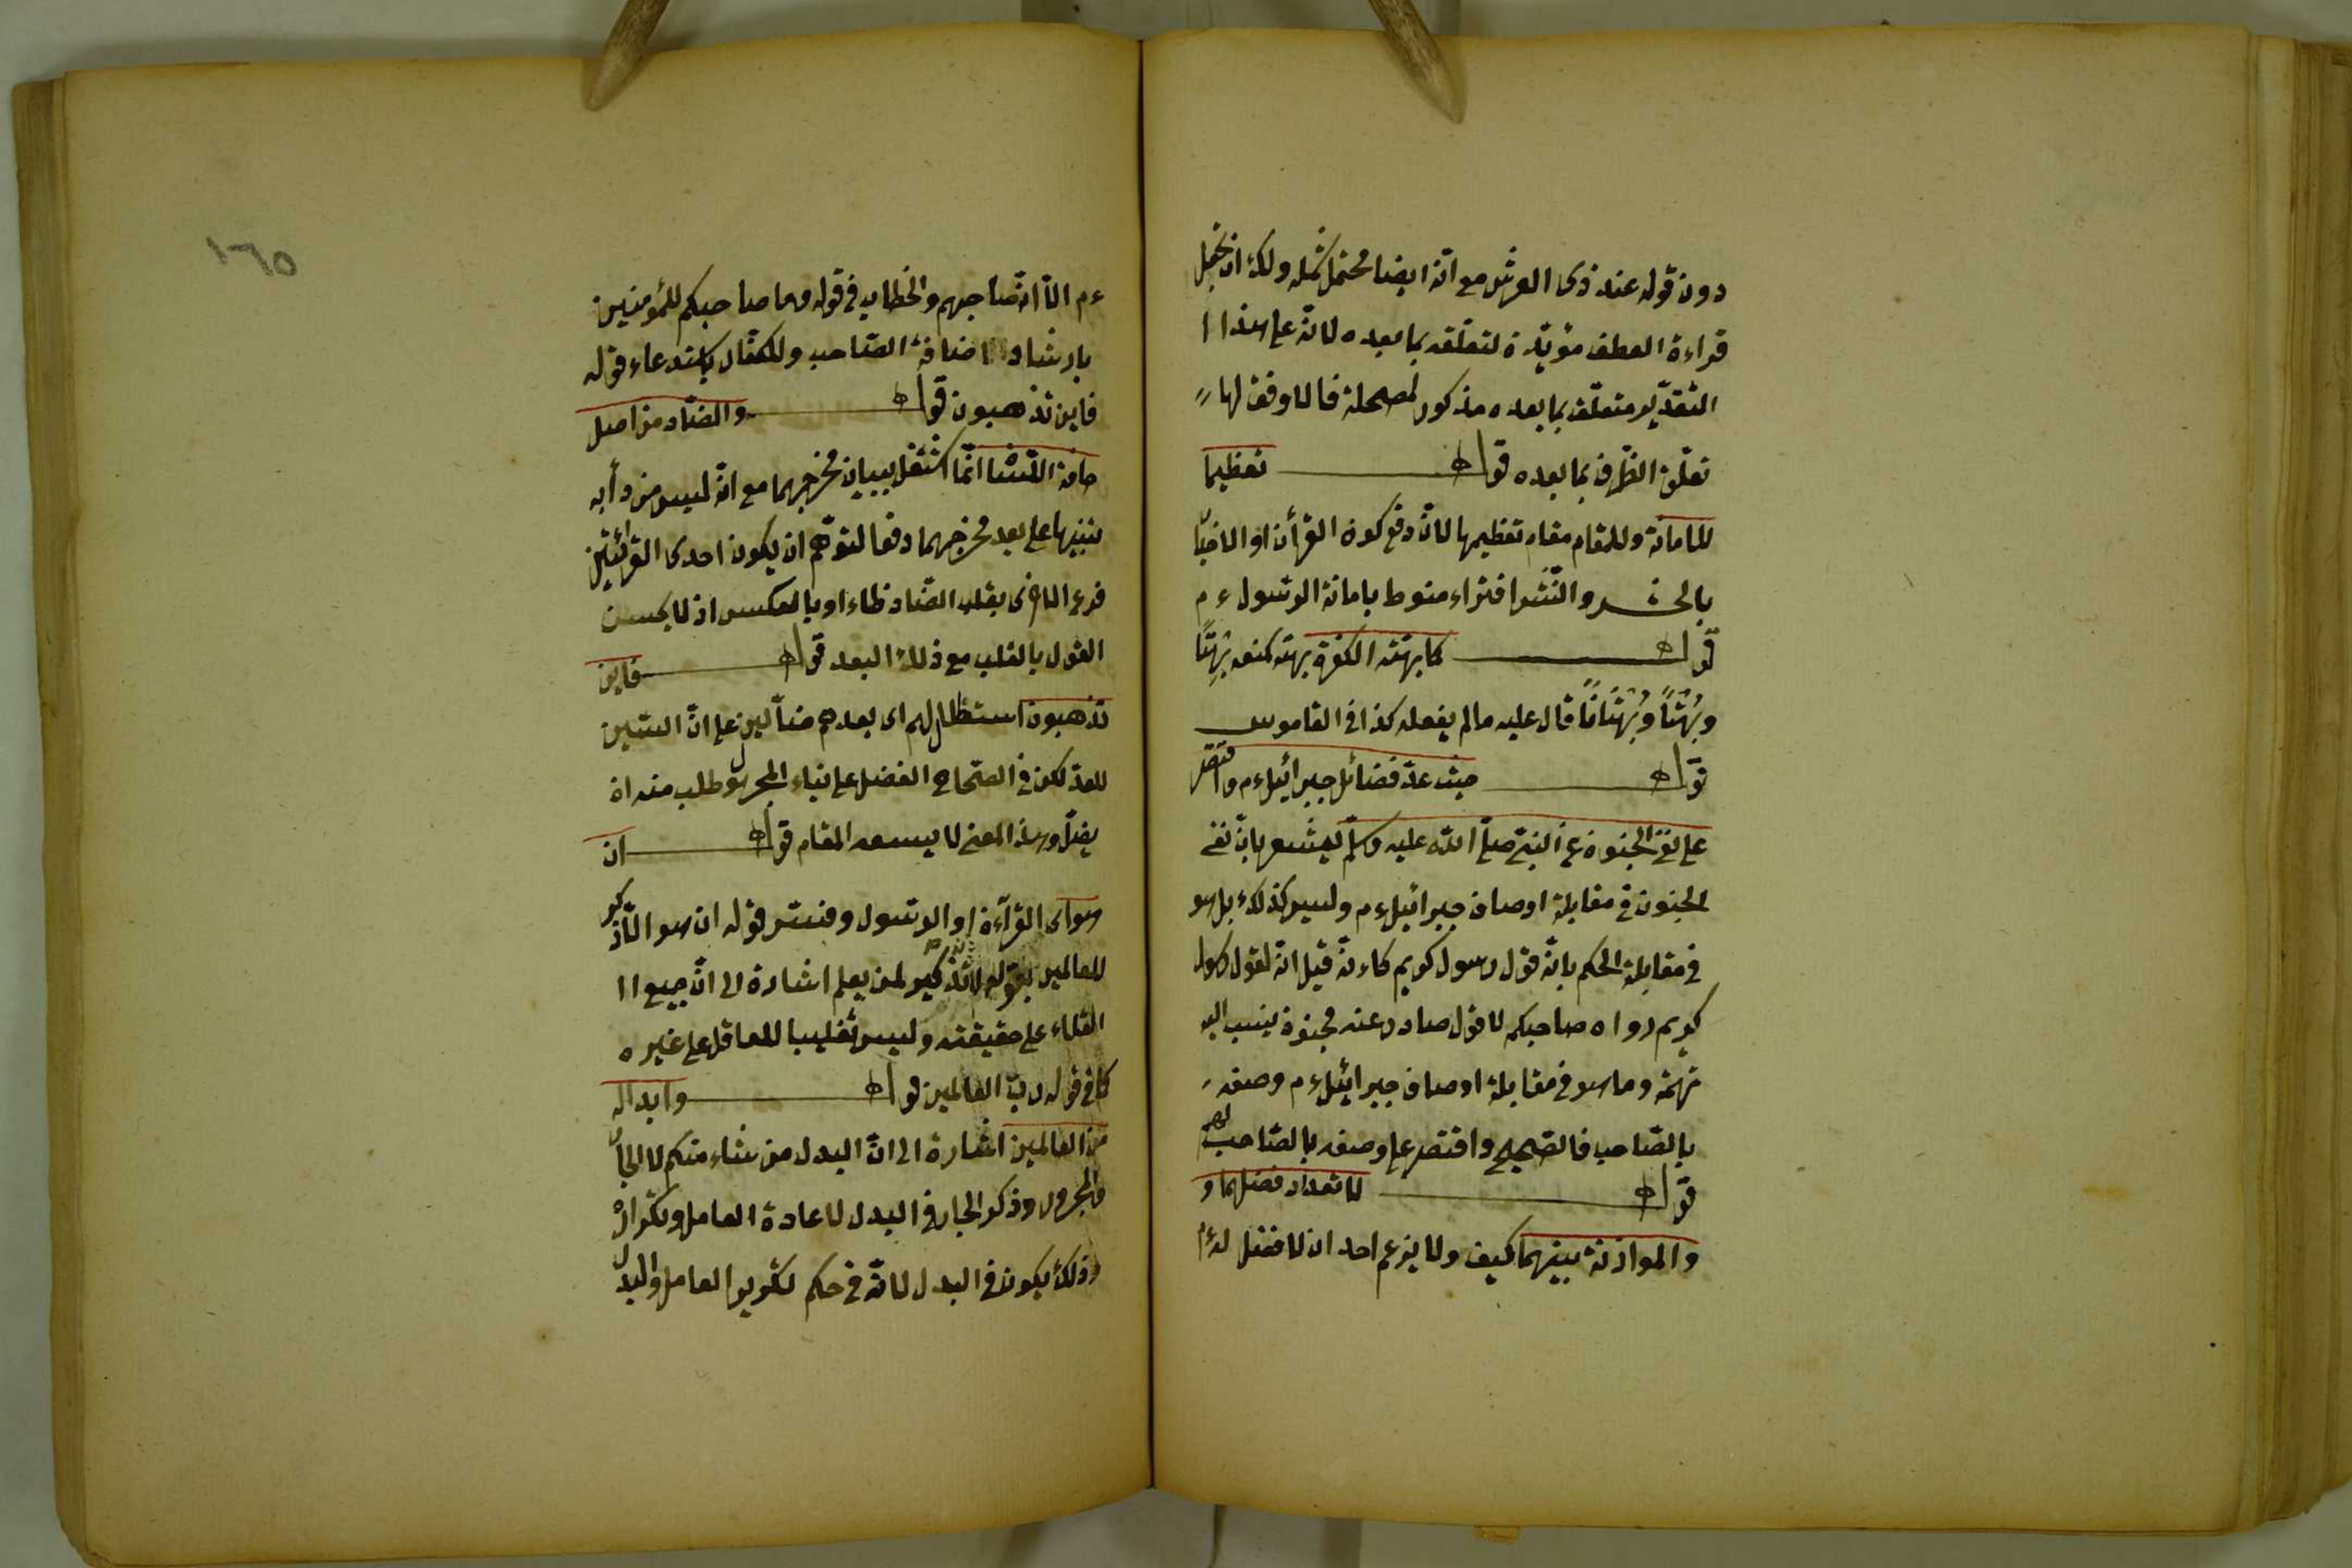 دون قوله عند ذى العرش مع انّه ايضا محتمل ولك ان تجعل
قراءة العطف مؤيّدة لتعلّقه بما بعده لانّه على هذا ا
التّقدير متعلّق بما بعده مذكور لمصحلة فالاوفق لها
تعلّق الظّرف بما بعده قوله تعظيما
للامانة وللمقام مقام تعظيمها لانّ دفع كون القرأن او الاخبار
بالحشر والنّشر افتراء منوط بامانة الرّسول ءم
قوله كما بهته الكفرة بهته كمنعه بَهْتًا
وبُهْتًا وبُهْتَانًا قال عليه مالم يفعله كذا فى القاموس
قوله حيث عدّ فضائل جبرائيل ءم واقتصر
على نفى الجنون عن النبىّ صلّى الله عليه وسلّم يشعر بانّ نفى
الجنون فى مقابلة اوصاف جبرائيل ءم وليس كذلك بل هو
فى مقابلة الحكم بانّه قول رسول كريم كاءنّه قيل انّه لقول رسول
كريم رواه صاحبكم لا قول صادر عنه جنون ينسب اليه
تهمة وما هو فى مقابلة اوصاف جبرائيل ءم وصفه
بالصّاحب فالصّحيح واقتصر على وصفه بالصّاحب لهم
قوله لا تعداد فضلهما و
والموازنة بينهما كيف ولا يزعم احد ان لا فضل له ءم
ءم الّا انّه صاحبهم والخطاب فى قوله وما صاحبكم للمؤمنين
بارشاد اضافة الصّاحب وللكفّار باستدعاء قوله
فاين تذهبون قوله والضّاد من اصل
حافة اللّسان انّما اشتغل ببيان مخرجهما مع انّه ليس من دأبه
تنبيها على بعد مخرجهما دفعا لتوهّم ان يكون احدى القرائتين
فرع الاخرى بقلب الضّاد ظاء او بالعكس اذ لا يحسن
القول بالقلب مع ذلك البعد قوله فاين
تذهبون استضلال لهم اى بعدهم ضآلين على انّ السّين
للعدّ لكن فى الصّحاح الفضل على بناء المجهول طلب منه ان
يضلّ وهذا المعنى لا يسعه المقام قوله ان
هو اى القرآءة او الرّسول وفسّر قوله ان هو الّا ذكر
للعالمين بقوله تذكير لمن يعلم اشارة الى انّ جميع ا
العقلاء على حقيقته وليس تغليبا للعاقل على غيره
كما فى قوله ربّ العالمين قوله وابداله
من العالمين اشارة الى انّ البدل من شاء منكم لا الجار
والمجرور وذكر الجار فى البدل لاعادة العامل وتكراره
وذلك يكون فى البدل لانّه فى حكم تكرير العامل والبدل
١٦٥